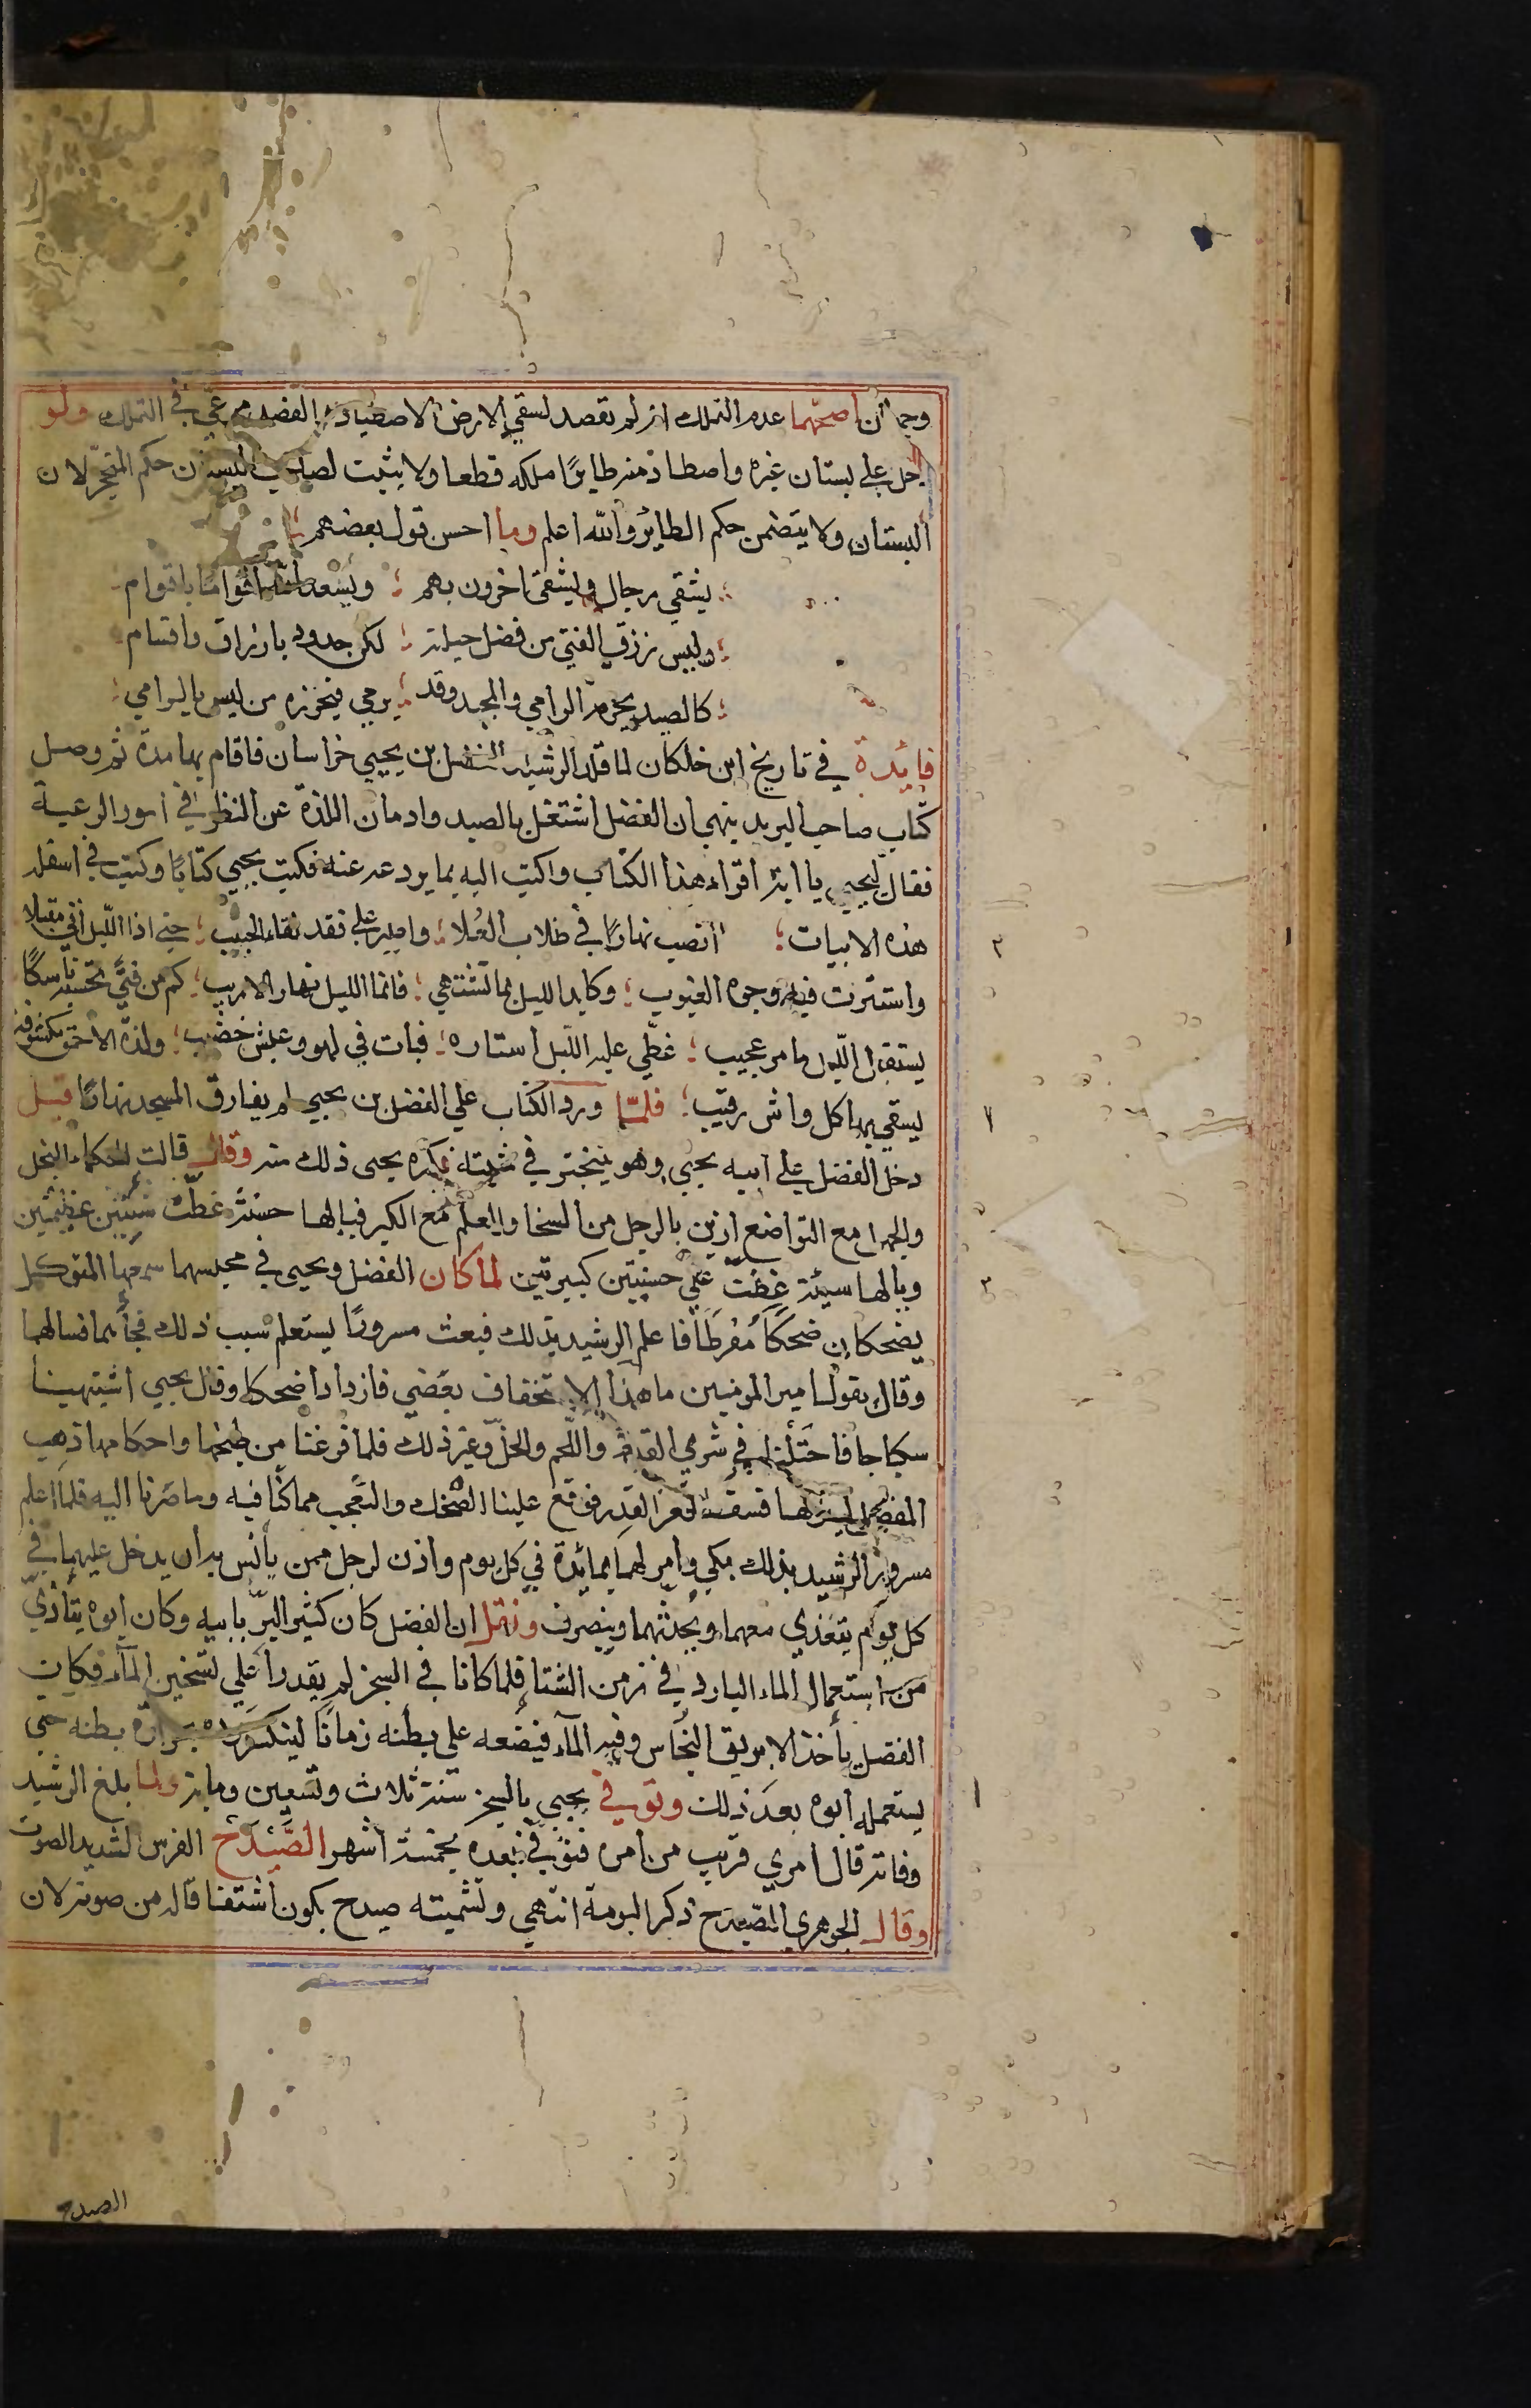 وجهان اصحهما عدم التملك انه لم يقصد لسقي الارض الاصطياد و القصد مرعي في التملك ولو
دخل علي بستان غيره واصطاد منه طايرًا ملكه قطعا ولا يثبت لصاحب البستان حكم المتحجر لان
البستان ولا يتضمن حكم الطائر والله اعلم وما احسن قول بعضهم
يشقي رجال ويشقي اخرون بهم ؛ ويسعد الله اقوامًا باقوام
وليس رزق الفتي من فضل حيلته ؛ لكن جدود بارزاق واقسام
كالصيد يحرمه الرامي والمجيد وقد ؛ يرمي فيحرزه من ليس بالرامي
فايدة في تاريخ ابن خلكان لما قلد الرشيد الفضل بن يحيي خراسان فاقام بها مدة ثم وصل
كتاب صاحب البريد ينهي ان الفضل اشتغل بالصيد وادمان اللذة عن النظر في امور الرعية
فقال ليحيي يا ابة اقراء هذا الكتاب واكتب اليه بما يردعه عنه فكتب يحيي كتابًا وكتب في اسفله
هذه الابيات ؛ انصب نهارًا في طلاب العُلا ؛ واصبر علي فقد لقاء الحبيب ؛ حتي اذا الليل اتي مقبلا
واستترت فيه وجوه العيوب ؛ وكابد الليل بما تشتهي ؛ فانما الليل نهار الاريب ؛ كم من فتيً تحسبه ناسكًا
يستقبل الليل بامر عجيب ؛ غطّي عليه الليل استاره ؛ فبات في لهو وعيش خصيب ؛ ولذة الاحمق مكشوفة
يسقي بها كل واش رقيب ؛ فلما ورد الكتاب علي الفضل بن يحيي لم يفارق المسجد نهارًا قيل
دخل الفضل علي ابيه يحيي وهو يتبختر في مشيته فكره يحيى ذلك منه وقال قالت الحكماء البخل
والجهل مع التواضع ازين بالرجل من السخا والعلم مع الكبر فيالها حسنة غطّت سيئتين عظيمتين
ويالها سيئة غطت علي حسنتين كبيرتين لما كان الفضل ويحيى في محبسهما سمعهما المتوكل
يضحكان ضحكًا مُفرطًا فاعلم الرشيد بذلك فبعث مسرورًا يستعلم سبب ذلك فجأهما فسالهما
وقال يقول امير المومنين ما هذا الاستخفاف بغضبي فازدادا ضحكا وقال يحيي اشتهينا
سكباجا فاحتلنا في شري القدر واللحم والخل وغير ذلك فلما فرغنا من طبخها واحكامها ذهب
الفضل لينزلها فسقط قعر القدر فوقع علينا الضحك والتعجب مما كنا فيه وما صرنا اليه فلما اعلم
مسرور الرشيد بذلك بكي وامر لهما بمائدة في كل يوم واذن لرجل ممن يأنس به ان يدخل عليهما في
كل يوم يتغذي معهما ويحدثهما وينصرف ونقل ان الفضل كان كثير البرّ بابيه وكان ابوه يتأذي
من استعمال الماء البارد في زمن الشتا فلما كانا في السجن لم يقدرا علي تسخين المآء فكان
الفضل يأخذ الابريق النحاس وفيه المآء فيضعه على بطنه زمانًا لينكسر برده بحرارة بطنه حتي
يستعمله ابوه بعد ذلك وتوفي يحيي بالسجن سنة ثلاث وتسعين وماية ولما بلغ الرشيد
وفاته قال امري قريب من امره فتوفي بعده بخمسة اشهر الصَّيْدَح الفرس الشديد الصوت
وقال الجوهري الصيدح ذكر البومة انتهي وتسميته صيدح يكون اشتقاقا له من صوته لان
الصدح